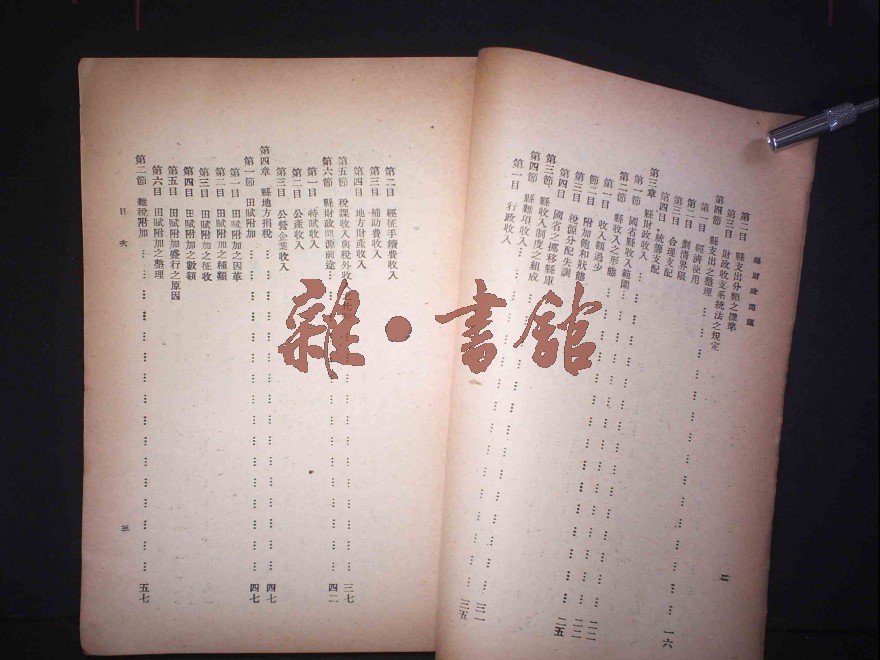 縣財政問題
第二目 縣支出分類之標準
第三目 財政收支系統法之規定
第四節 縣支出之整理…
第一目 經濟使用
第二目 劃清界限
第三目 合理支配
第四目 統籌支配
第三章 縣財政收入… 一六
第一節 國省縣收入範圍…
第二節 縣收入之形態…
第一目 收入額過少
第二目 附加飽和狀態
第三目 稅源分配失調
第四目 國省之挪移縣庫
第三節 縣收入制度之組成
第四節 縣雜項收入…
第一目 行政收入
二二
二二
二五
三一
三五
二
第二目 經征手續費收入
第三目 補助費收入
第四目 地方財產收入
第五節 稅課收入與稅外收 三七
第六節 縣財政開源前途… 四二
第一目 特賦收入
第二目 公產收入
第三目 公營企業收入
第四章 縣地方捐稅… 四七
第一節 田賦附加… 四七
第一目 田賦附加之因革
第二目 田賦附加之種類
第三目 田賦附加之征收
第四目 田賦附加之數額
第五目 田賦附加盛行之原因
第六目 田賦附加之整理
第二節 雜稅附加… 五七
目次
三
雜·書館